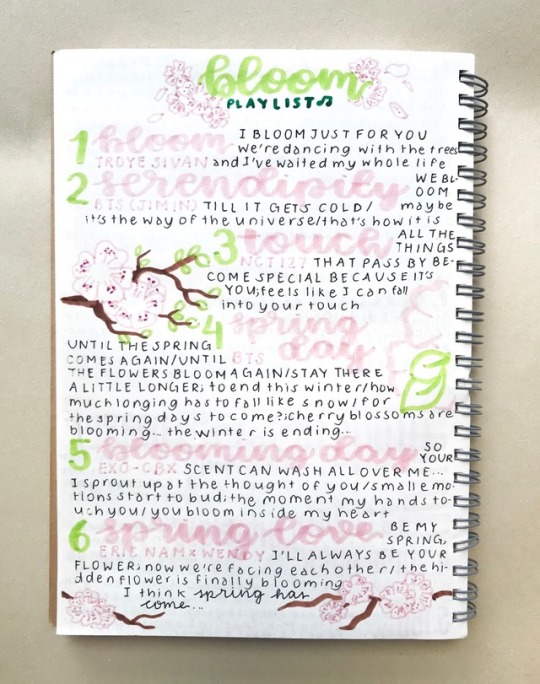 bloom
PLAYLIST♫
1 bloom I BLOOM JUST FOR YOU
we're dancing with the trees
TROYE SIVAN and I've waited my whole life
2 serendipity WE BL-
OOM
BTS (JIMIN) TILL IT GETS COLD/ maybe
it's the way of the universe/that's how it is
3 touch ALL THE
THINGS
NCT 127 THAT PASS BY BE-
COME SPECIAL BECAUSE IT'S
YOU;feels like I can fall
into your touch
4 spring
day
BTS
UNTIL THE SPRING
COMES AGAIN/UNTIL
THE FLOWERS BLOOM AGAIN/STAY THERE
A LITTLE LONGER; to end this winter/how
much longing has to fall like snow/for
the spring days to come?;cherry blossoms are
blooming... the winter is ending...
5 blooming day SO
YOUR
EXO-CBX SCENT CAN WASH ALL OVER ME...
I sprout up at the thought of you/small emo-
tions start to bud; the moment my hands to-
uch you/you bloom inside my heart
6 spring love BE MY
SPRING,
ERIC NAM x WENDY I'LL ALWAYS BE YOUR
FLOWER; now we're facing each other/the hi-
dden flower is finally blooming
I think spring has
come...